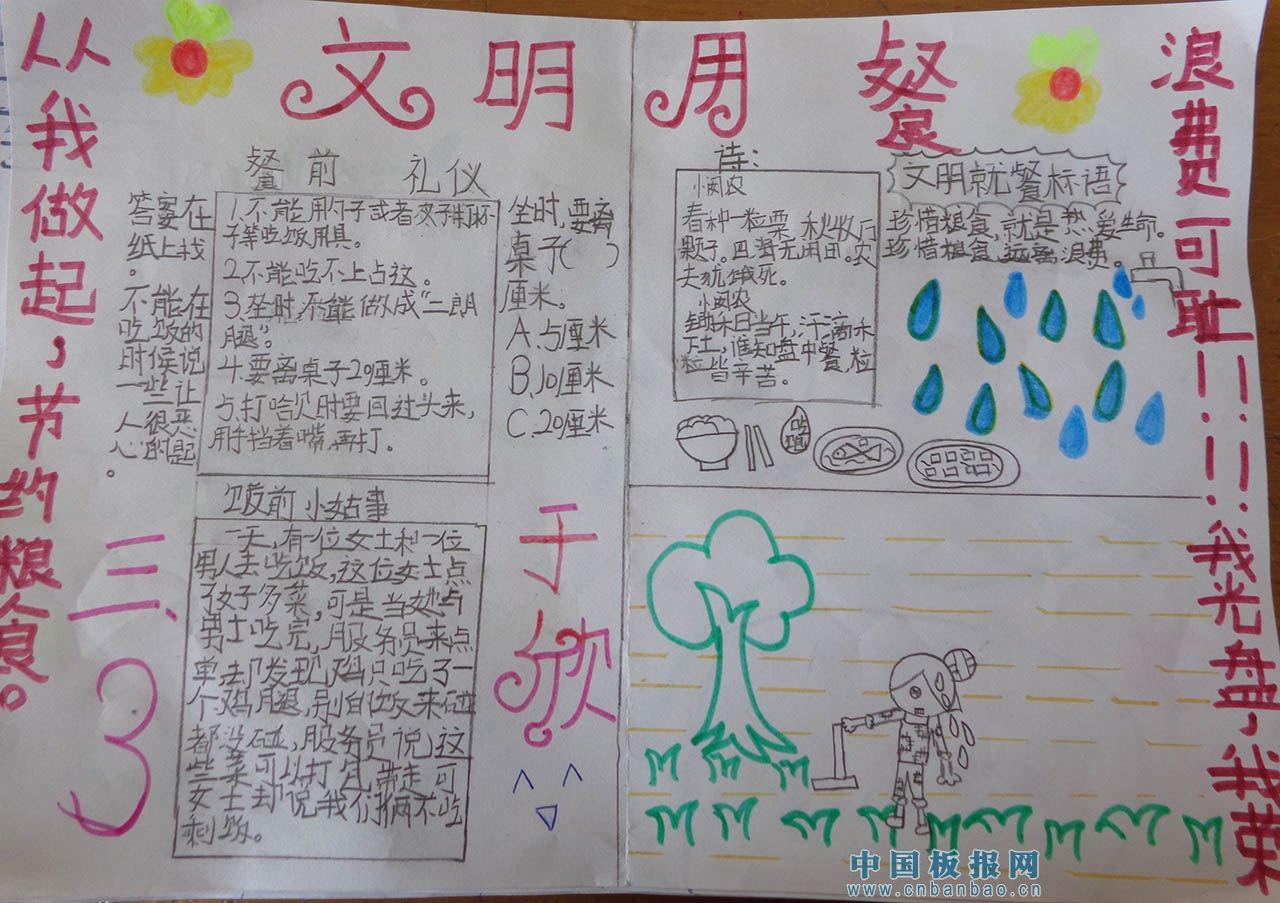 文明用餐
从人我做起，节约粮食。
浪费可耻！！！！我光盘，我荣
餐前 礼仪
1.不能用勺子或者筷子
子等吃饭用具。
2.不能吃不上占这。
3.坐时,不能做成“二朗
腿”。
4.要离桌子20厘米。
5.打哈贝时要回过头来,
用手挡着嘴,再打。
答案在
纸上找
。
不能在
吃饭的
时候说
一些让
人很恶
心的题
。
坐时,要离
桌子( )
厘米。
A.5厘米
B.10厘米
C.20厘米
饭前小姑事
一天,有一位女士和一位
男人去吃饭,这位女士点
了好多菜,可是当她与
男士吃完,服务员来点
单去门发现,鸡只吃了一
个鸡腿,别的饭来碰
都没碰,服务员说,这
些菜可以打包带走可
女士去说我们俩不吃
剩饭。
三、3
于欣
诗:
小闵农
春种一粒栗,秋收后
颗子。四海无闲田。农
夫犹饿死。
小闵农
锄禾日当午,汗滴禾
下土,谁知盘中餐,粒
粒皆辛苦。
文明就餐标语
珍惜粮食,就是热爱生命。
珍惜粮食,远离浪费。
中国板报网
www.cnbanbao.cn